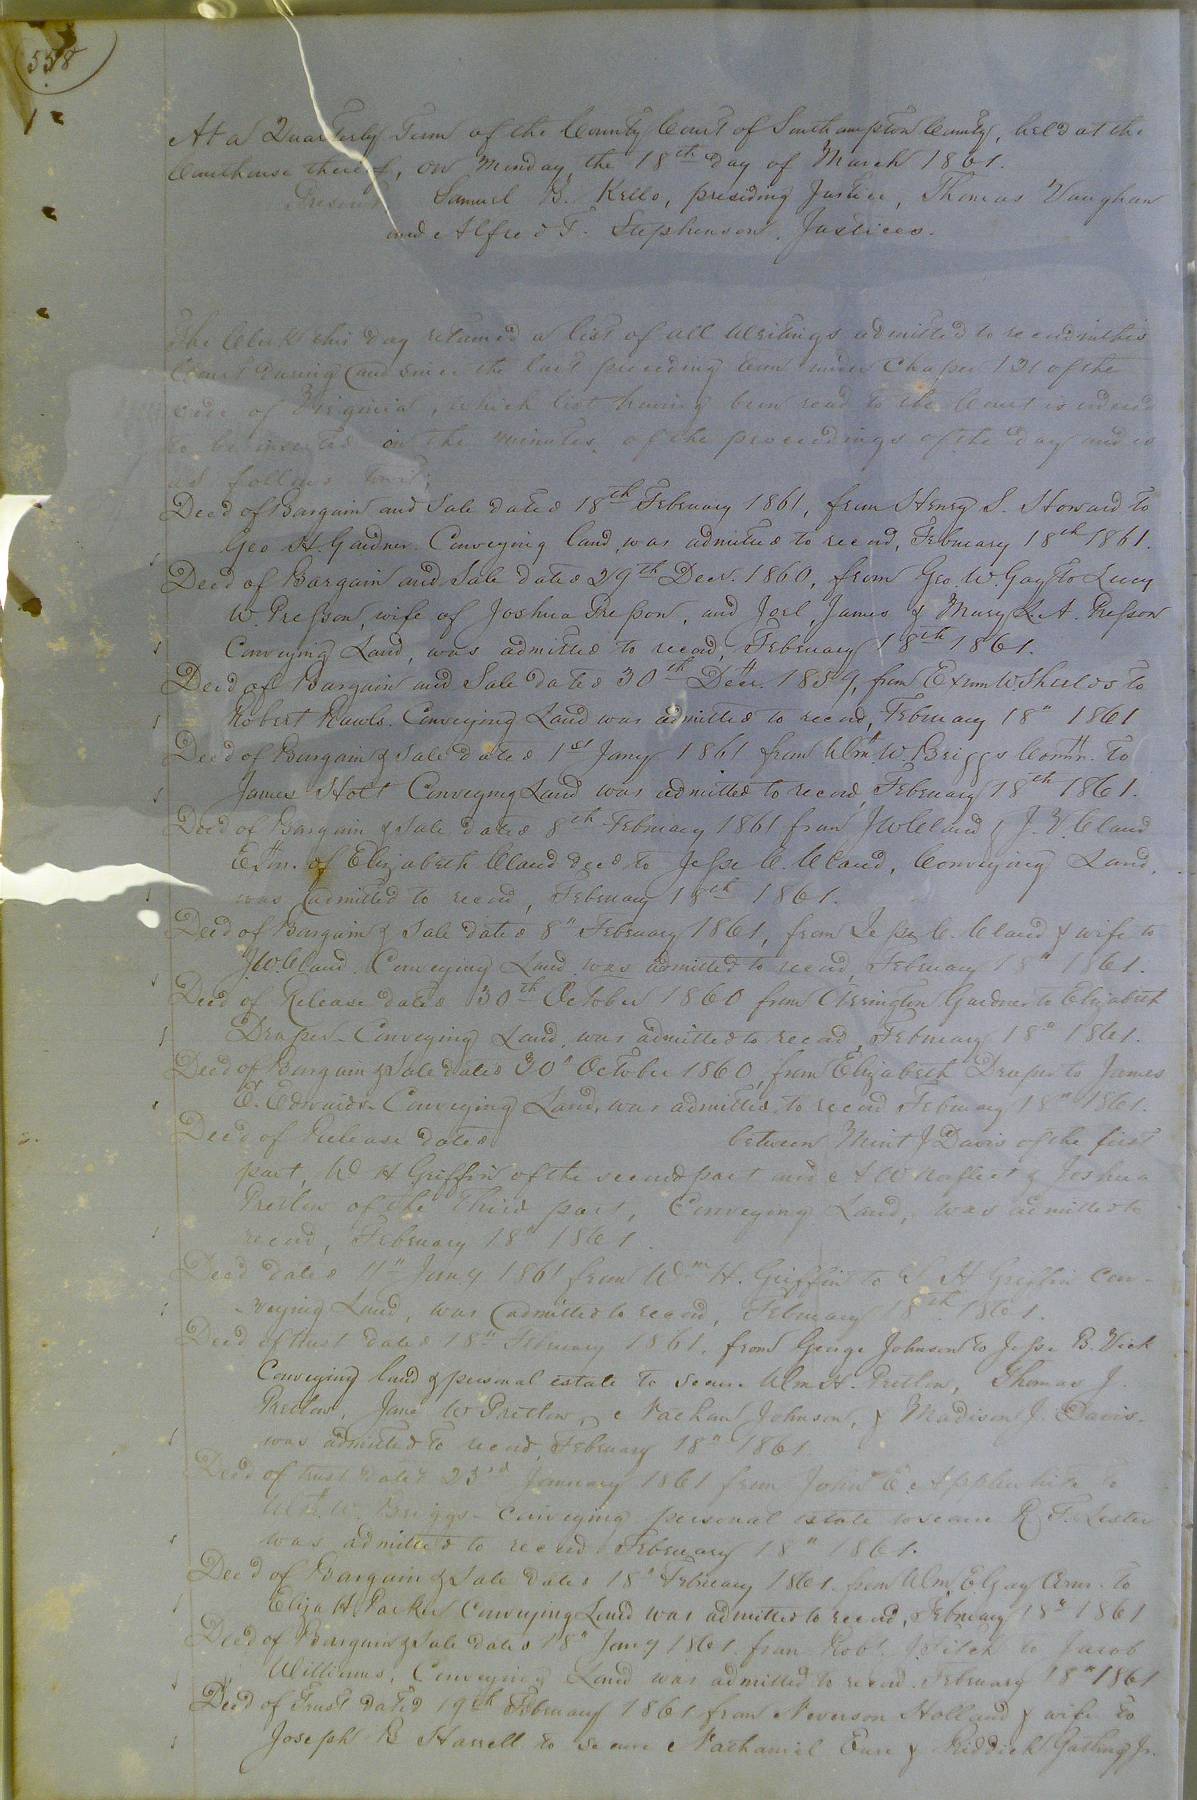 558
At a Quarterly Term of the County Court of Southampton County, held at the
Courthouse thereof, on Monday, the 18th day of March 1861.
Present Samuel B. Kello, presiding Justice, Thomas Vaughan
and Alfred T. Stephenson, Justices.
The Clerk this day returned a list of all writings admitted to record in this
Court during and since the last preceding term under Chapter 121 of the
Code of Virginia, which list having been read to the Court is ordered
to be inserted in the minutes of the proceedings of the day and is
as follows towit:
Deed of Bargain and Sale dated 18th February 1861, from Henry S. Howard to
Geo H. Gardner. Conveying land, was admitted to record, February 18th 1861.
Deed of Bargain and Sale dated 29th Decr. 1860, from Geo. W. Gay to Lucy
W. Presson, wife of Joshua Presson, and Joel, James & Mary L. A. Presson
Conveying Land, was admitted to record, February 18th 1861.
Deed of Bargain and Sale dated 30th Decr. 1859, from Exum W. Shields to
Robert Rawls. Conveying Land was admitted to record, February 18" 1861
Deed of Bargain & Sale dated 1st Jany 1861 from Wm. W. Briggs Comr. to
James Holt Conveying Land was admitted to record, February 18th 1861.
Deed of Bargain & Sale dated 8th February 1861 from J W Claud & J. Y. Claud
Exrs. of Elizabeth Claud decd to Jesse C. Claud, Conveying Land,
was admitted to record, February 18th 1861.
Deed of Bargain & Sale dated 8" February 1861, from Jesse C. Claud & wife to
J W. Claud. Conveying Land, was admitted to record, February 18" 1861.
Deed of Release dated 30th October 1860 from Arrington Gardner to Elizabeth
Draper. Conveying Land, was admitted to record, February 18" 1861.
Deed of Bargain & Sale dated 30" October 1860, from Elizabeth Draper to James
E. Edwards. Conveying Land, was admitted to record February 18" 1861.
Deed of Release dated between Mint J Davis of the first
part, W H Griffin of the second part and A W Norfleet & Joshua
Pretlow of the third part, Conveying Land, was admitted to
record, February 18" 1861.
Deed dated 11" Jany 1861 from Wm H. Griffin to S H Griffin con-
veying Land, was admitted to record, February 18th 1861.
Deed of trust dated 18" February 1861, from George Johnson to Jesse B. Vick
Conveying land & personal estate to secure Wm H. Pretlow, Thomas J.
Pretlow, Jane W Pretlow, Nathan Johnson, & Madison J. Davis.
was admitted to record, February 18" 1861
Deed of trust dated 23rd January 1861 from John E. Applewhite to
Wm. W. Briggs. Conveying personal estate to secure R F. Lester
was admitted to record February 18" 1861.
Deed of Bargain & Sale dated 18" February 1861 from Wm E Gay to
Eliza H. Parker Conveying Land was admitted to record, February 18" 1861
Deed of Bargain & Sale dated 18" Jany 1861 from Robt. J. to Jacob
Williams, Conveying Land was admitted to record February 18" 1861
Deed of Trust dated 19th February 1861 from Neverson Holland & wife to
Joseph B Harrell to secure Nathaniel Eure & Riddick Gatling Jr.